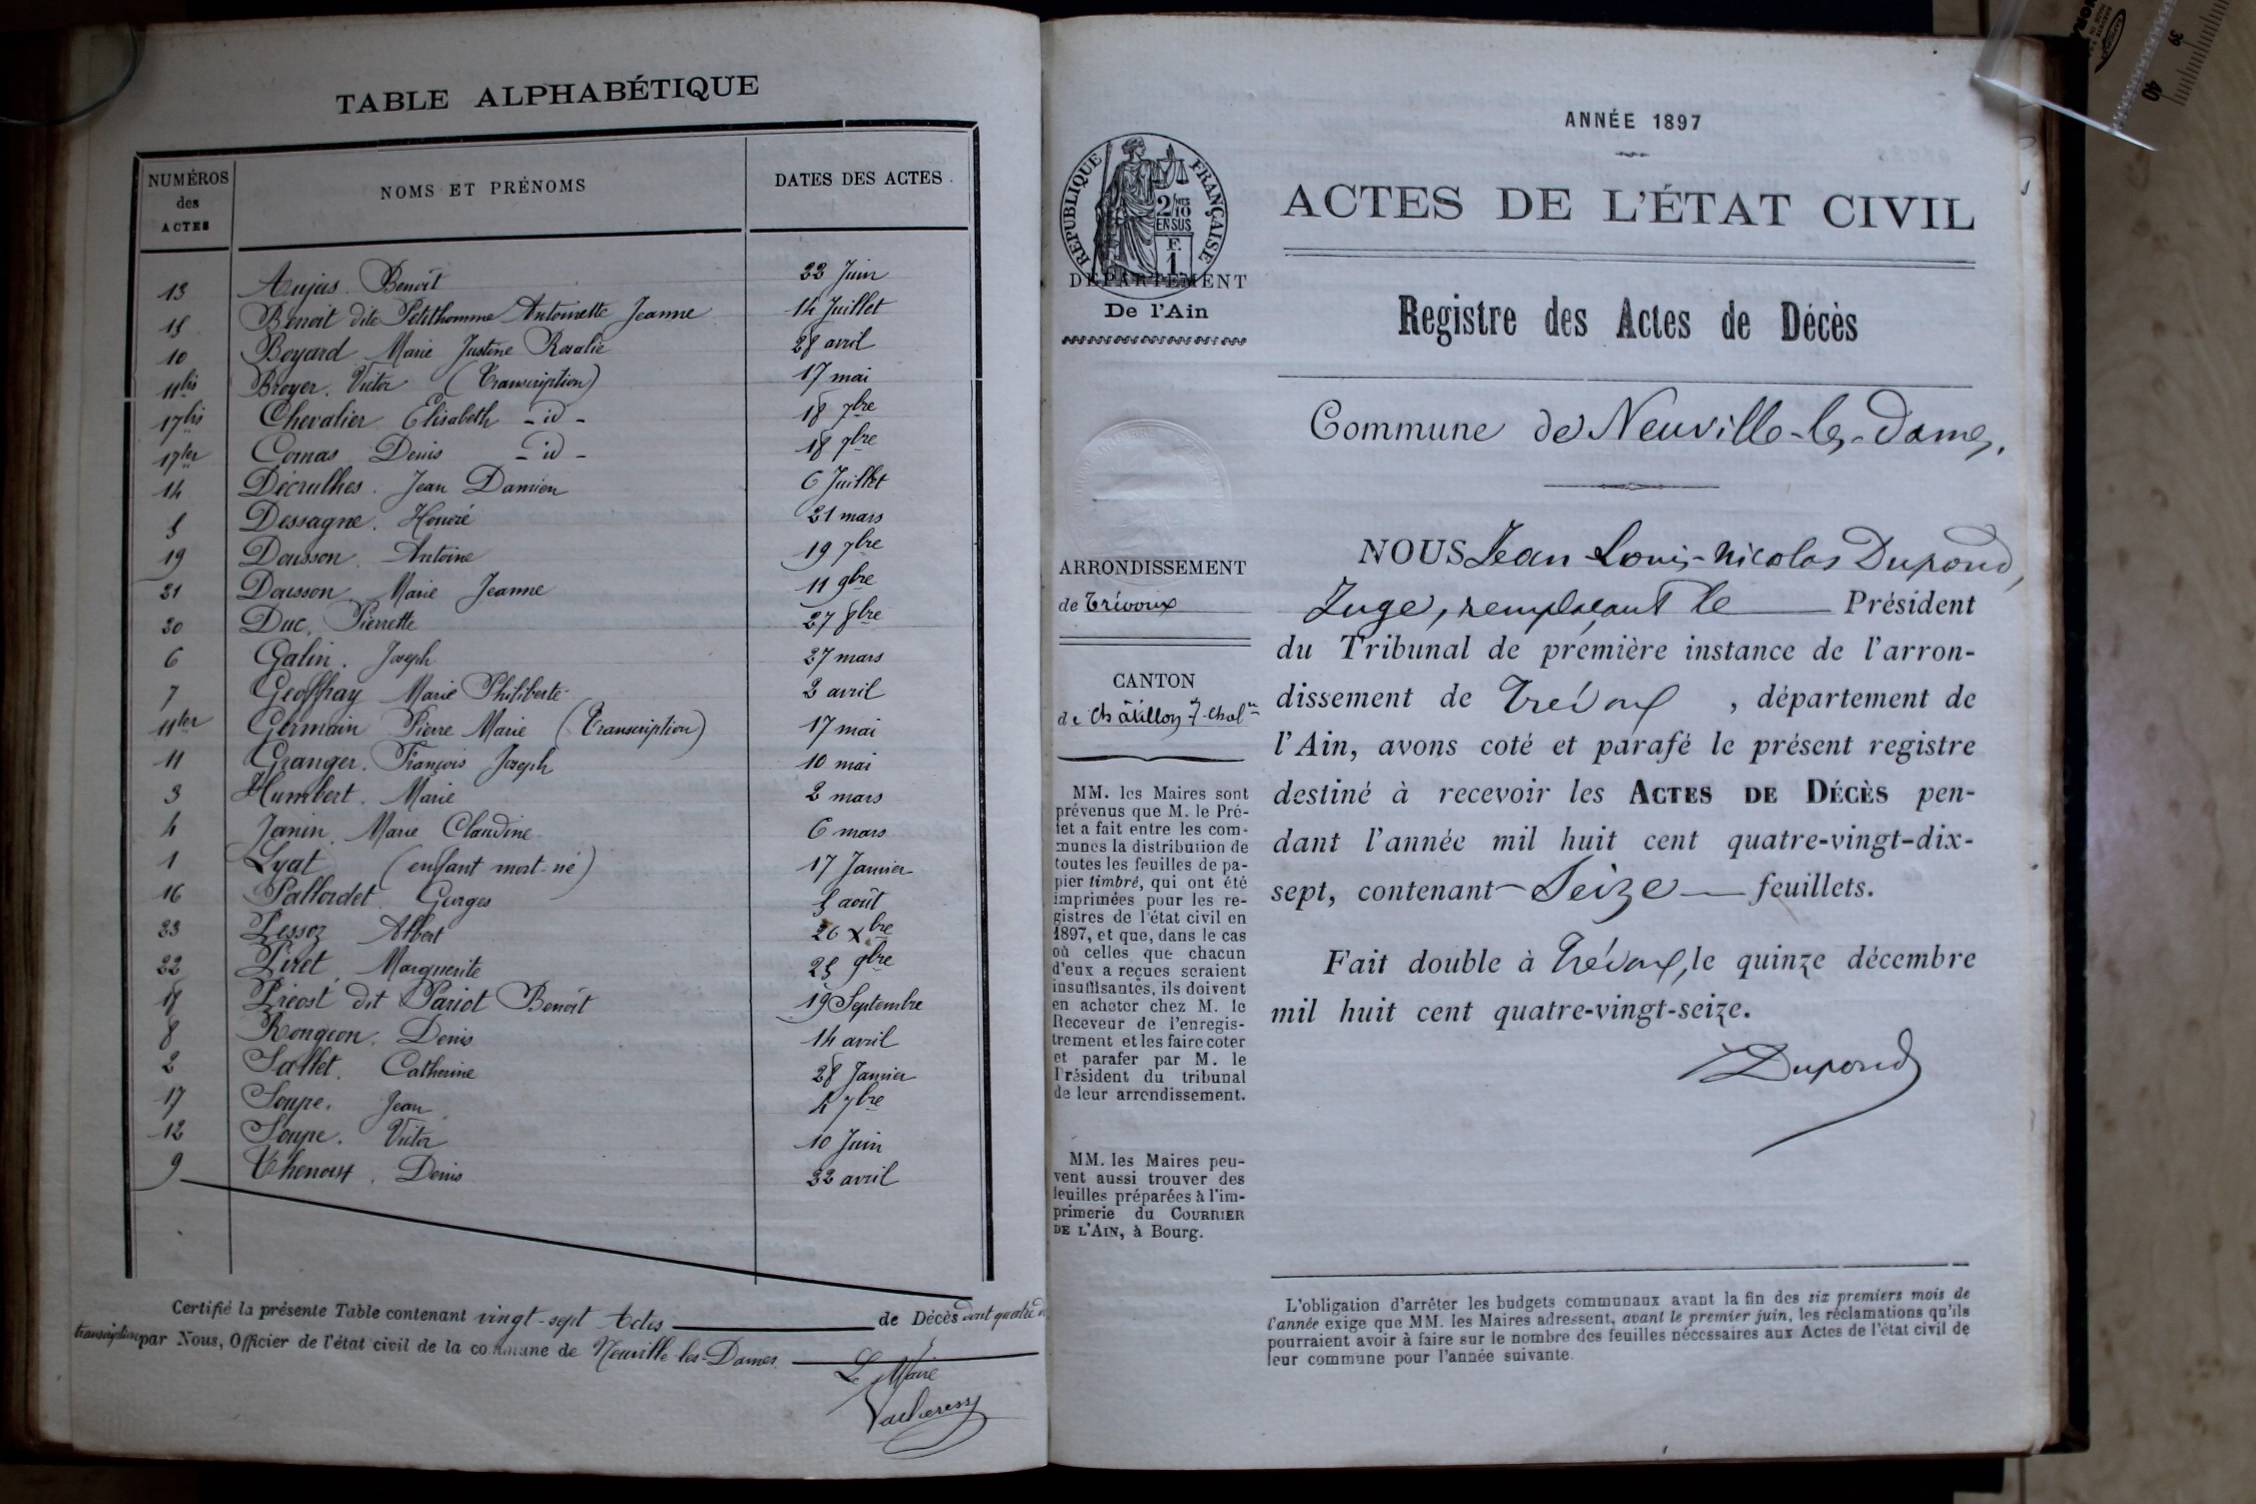 TABLE ALPHABÉTIQUE
NUMÉROS des ACTES NOMS ET PRÉNOMS DATES DES ACTES.
13 Aujas. Benoît 22 Juin
15 Benoit dite Petithomme Antoinette Jeanne 14 Juillet
10 Boyard Marie Justine Rosalie 28 avril
11bis Broyer. Victor (Transcription) 17 mai
17bis Chevalier Elisabeth - id - 18 7bre
17ter Comas Denis - id - 18 7bre
14 Décrulhes. Jean Damien 6 Juillet
5 Dessagne. Honoré 21 mars
19 Dousson. Antoine 19 7bre
21 Dousson. Marie Jeanne 11 9bre
20 Duc. Pierrette 27 8bre
6 Galin. Joseph 27 mars
7 Geoffray Marie Philiberte 2 avril
11ter Germain Pierre Marie (Transcription) 17 mai
11 Granger. François Joseph 10 mai
3 Humbert. Marie 2 mars
4 Janin. Marie Claudine 6 mars
1 Lyat (enfant mort-né) 17 Janvier
16 Pallordet Georges 5 août
23 Pessoz Albert 26 Xbre
22 Piret. Marguerite 25 9bre
18 Prévost dit Pariot Benoît 19 Septembre
8 Rongeon. Denis 14 avril
2 Sallet. Catherine 28 Janvier
17 Soupe. Jean 4 7bre
12 Soupe. Victor 10 Juin
9 Thenoux. Denis 22 avril
Certifié la présente Table contenant vingt-sept Actes de Décès dont quatre
transcription par Nous, Officier de l'état civil de la commune de Neuville-les-Dames.
Le Maire
ANNÉE 1897
RÉPUBLIQUE FRANÇAISE
2/10
EN SUS
F.
1
ACTES DE L'ÉTAT CIVIL
DÉPARTEMENT
De l'Ain
Registre des Actes de Décès
Commune de Neuville-les-Dames.
ARRONDISSEMENT
de Trévoux
CANTON
de Châtillon-s-Chalne
MM. les Maires sont
prévenus que M. le Pré-
fet a fait entre les com-
munes la distribution de
toutes les feuilles de pa-
pier timbré, qui ont été
imprimées pour les re-
gistres de l'état civil en
1897, et que, dans le cas
où celles que chacun
d'eux a reçues seraient
insuffisantes, ils doivent
en acheter chez M. le
Receveur de l'enregis-
trement et les faire coter
et parafer par M. le
Président du tribunal
de leur arrondissement.
MM. les Maires peu-
vent aussi trouver des
feuilles préparées à l'im-
primerie du COURRIER
DE L'AIN, à Bourg.
NOUS Jean Louis-Nicolas Dupond,
Juge, remplaçant le Président
du Tribunal de première instance de l'arron-
dissement de Trévoux, département de
l'Ain, avons coté et parafé le présent registre
destiné à recevoir les ACTES DE DÉCÈS pen-
dant l'année mil huit cent quatre-vingt-dix-
sept, contenant Seize feuillets.
Fait double à Trévoux, le quinze décembre
mil huit cent quatre-vingt-seize.
Dupond
L'obligation d'arrêter les budgets communaux avant la fin des six premiers mois de
l'année exige que MM. les Maires adressent, avant le premier juin, les réclamations qu'ils
pourraient avoir à faire sur le nombre des feuilles nécessaires aux Actes de l'état civil de
leur commune pour l'année suivante.
39
40